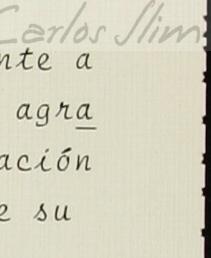 Carlos Slim
nte a
agra
ación
e su